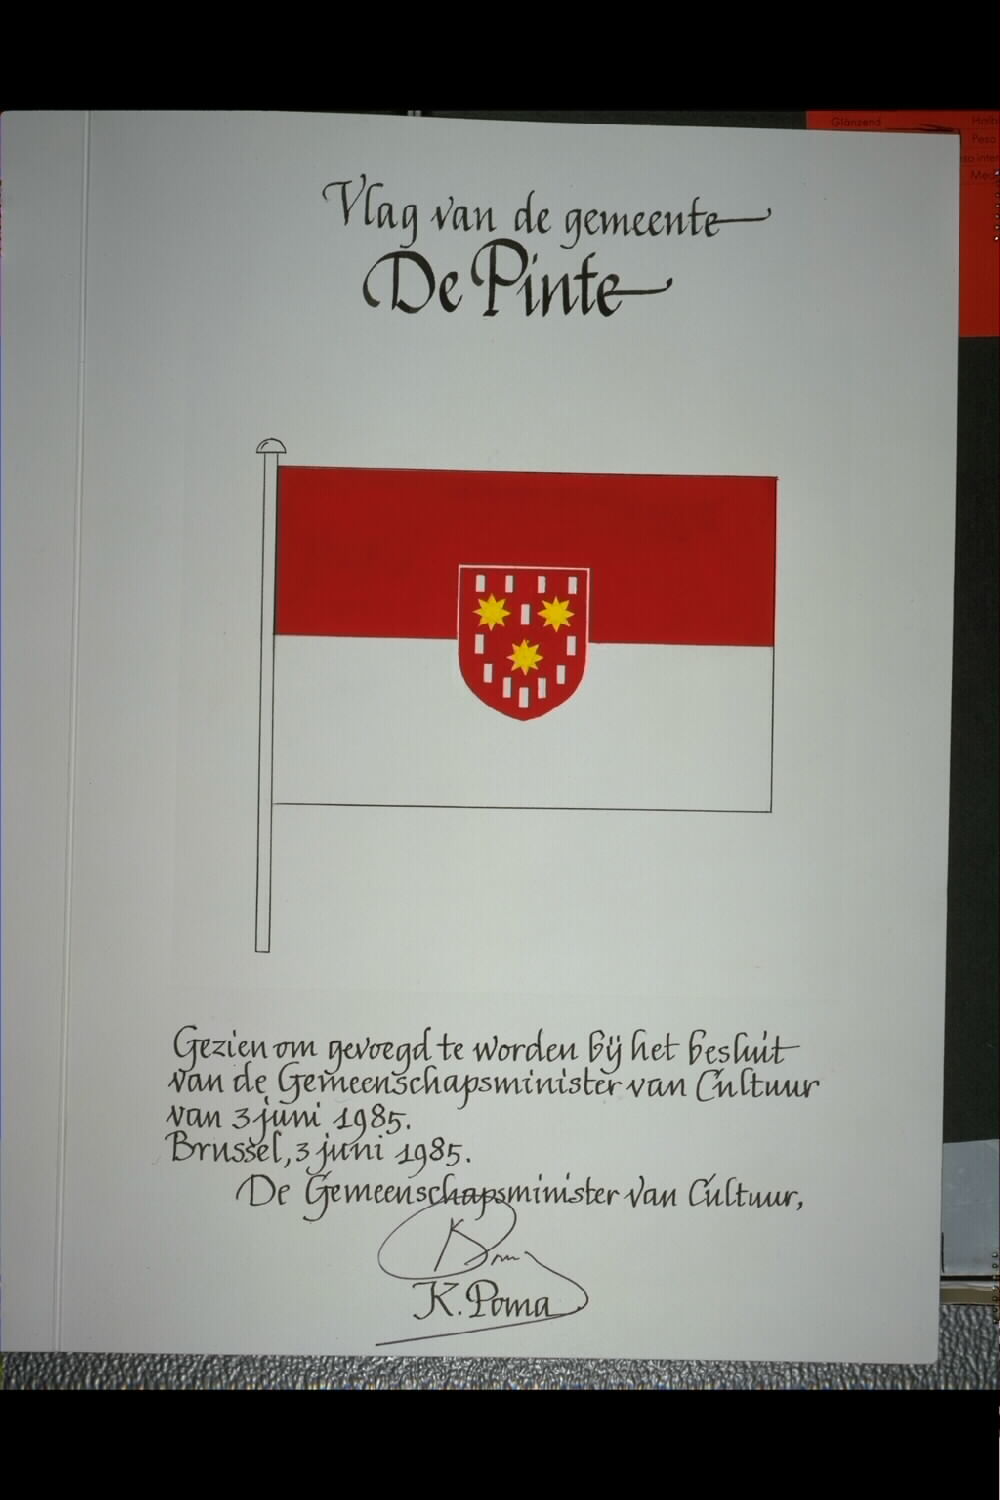 Glänzend
Vlag van de gemeente
De Pinte
Gezien om gevoegd te worden bij het besluit
van de Gemeenschapsminister van Cultuur
van 3 juni 1985.
Brussel, 3 juni 1985.
De Gemeenschapsminister van Cultuur,
K. Poma